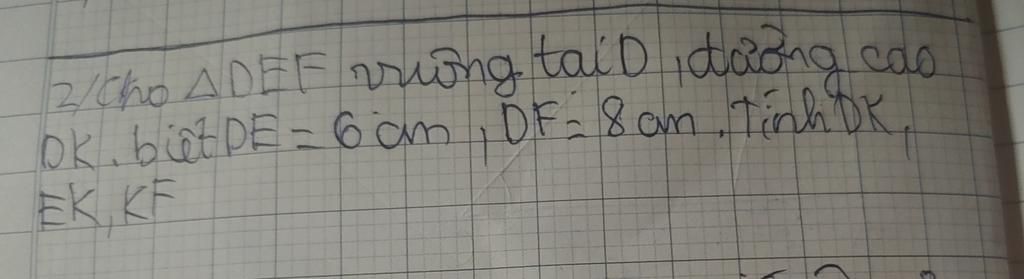 2/ Cho △DEF vuông tại D, đường cao
DK. biết DE = 6 cm, DF = 8 cm. Tính DK,
EK, KF